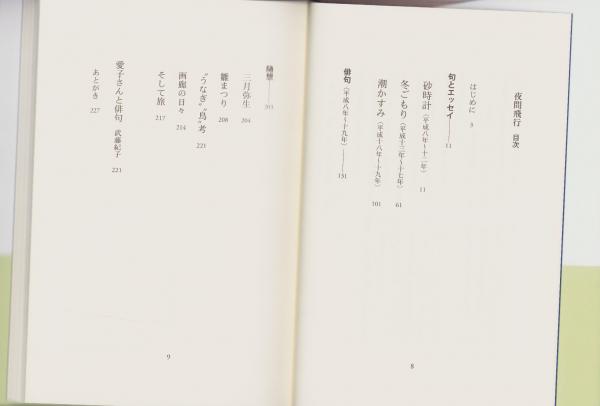 夜間飛行 目次
はじめに 3
句とエッセイ——11
砂時計（平成八年～十二年） 11
冬ごもり（平成十三年～十七年） 61
潮かすみ（平成十八年～十九年） 101
俳句（平成八年～十九年）——151
8
随想——203
三月弥生 204
雛まつり 208
〝うなぎ〟〝鳥〟考 221
画廊の日々 214
そして旅 217
愛子さんと俳句 武藤紀子 221
あとがき 227
9